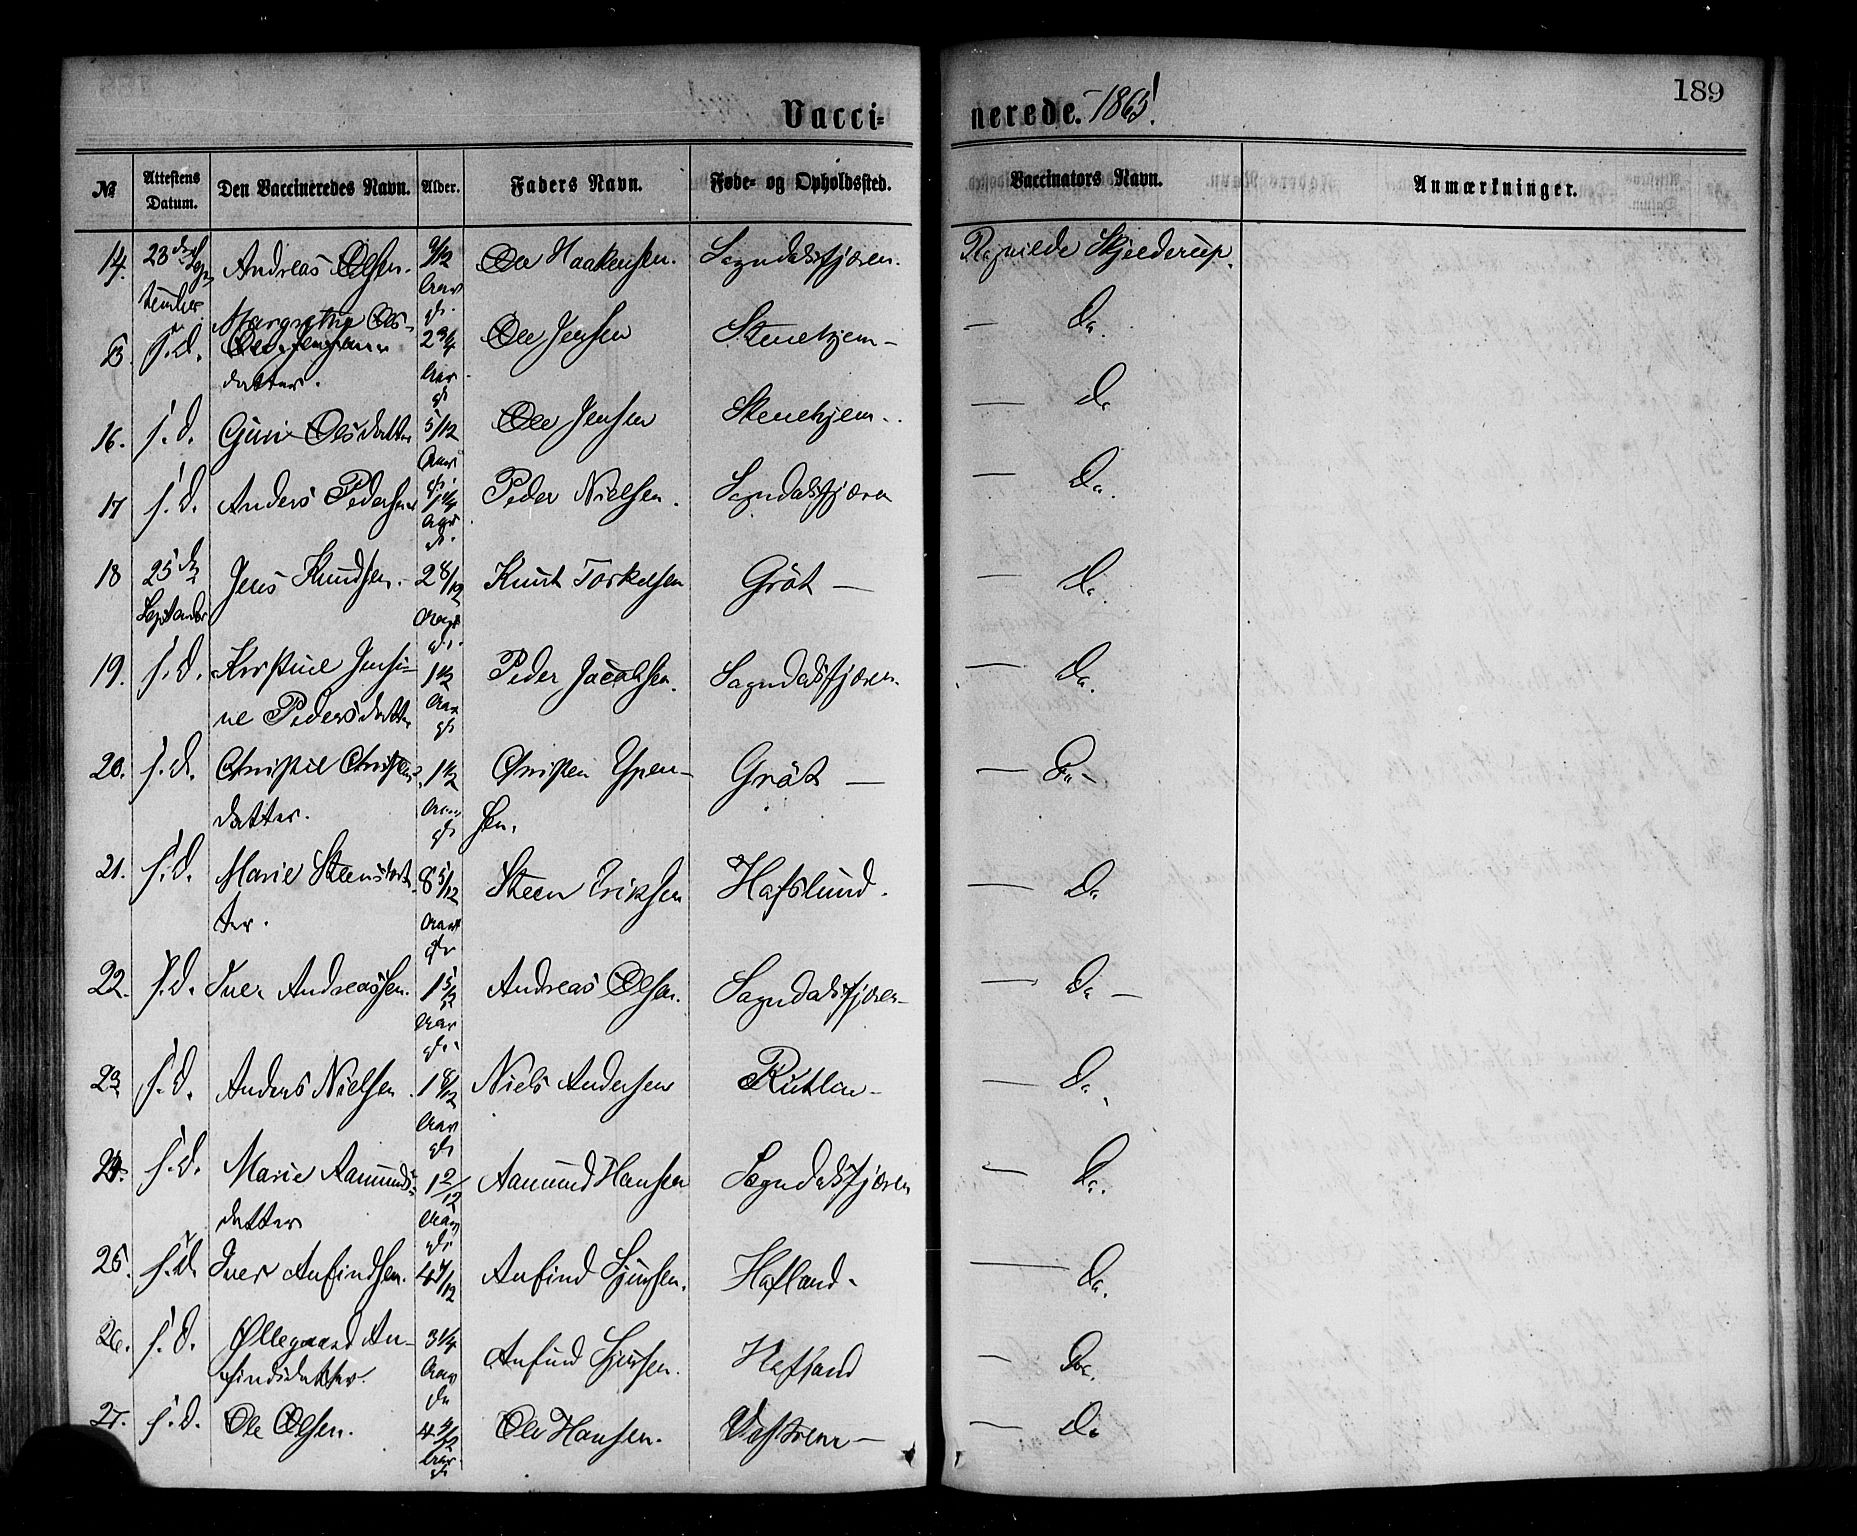 189
Vaccinerede. 1865!
№ Attestens Datum. Den Vaccineredes Navn. Alder. Faders Navn. Føde- og Opholdssted. Vaccinators Navn. Anmærkninger.
14. 23de September Andreas Olsen. 9/12 Aar gl. Ole Haakensen. Sogndalsfjæren. Skjelderup.
s.d. Margrethe Olsdatter. 2 3/4 Aar gl. Ole Jensen Stenehjem — — Do.
16. s.d. Guri Olsdatter 5/12 Aar gl. Ole Jensen Stenehjem. — Do
17 s.d. Anders Pedersen Aar gl. Peder Nielsen. Sogndalsfjæren — Do.
18 25de September Jens Knudsen. 2 8/12 Aar gl. Knut Torkelsen Gröt — — Do.
19. s.d. Kristine Jensine Pedersdatter 1 Aar gl. Peder Jacobsen. Sogndalsfjæren. — Do.
20. s.d. Christine Christensdatter. 1 Aar gl. Christen Ypensen. Gröt — — Do —
21. s.d. Marie Steensdatter. 8 5/12 Aar gl. Steen Eriksen Hafslund. — Do
22. s.d. Iver Andreassen. 1 5/12 Aar gl. Andreas Olsen. Sogndalsfjæren — — Do —
23 s.d. Anders Nielsen. 1 8/12 Aar gl. Niels Andersen Rutlin — — Do.
24. s.d. Marie Aamundsdatter 1 2/12 Aar gl. Aamund Hansen Sogndalsfjæren — Do.
25. s.d. Iver Anfindsen. 4 7/12 Anfind Sjursen. Hafland — — Do.
26. s.d. Øllegaard Anfindsdatter. 3 1/4 Aar gl. Anfind Sjursen. Hafland — Do.
27. s.d. Ole Olsen. 4 9/12 Aar gl. Ole Hansen. Vestrem — — Do